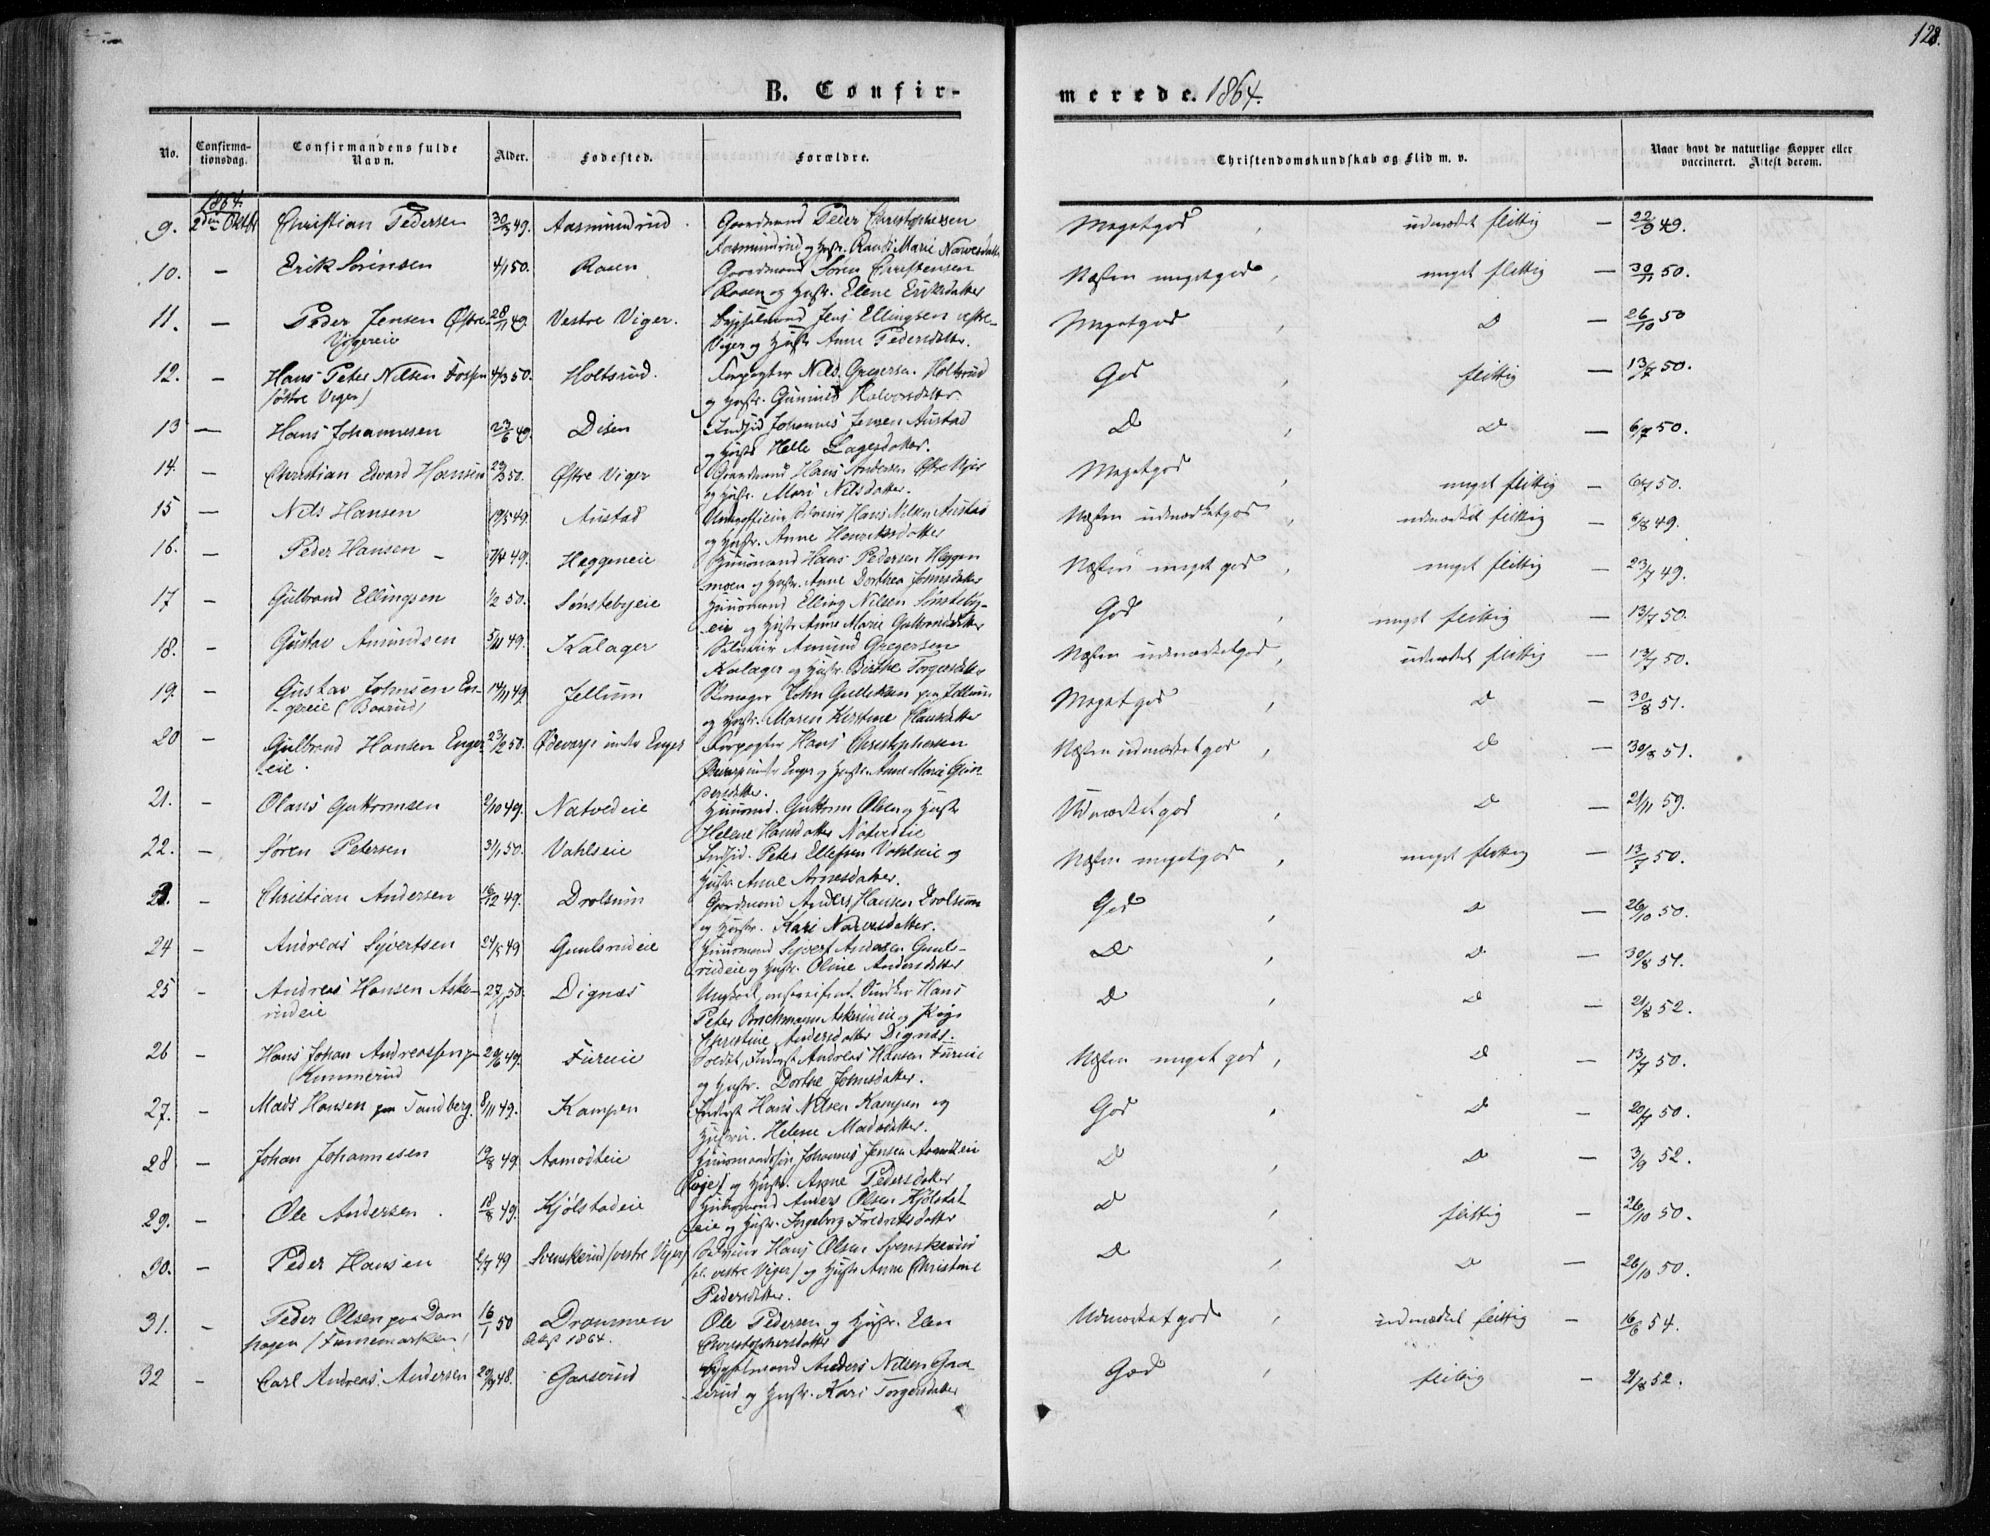 128.
B. Confirmerede. 1864.
No. Confirmationsdag. Confirmandens fulde Navn. Alder. Fødested. Forældre. Christendomskundskab og Flid m. v. Naar havt de naturlige Kopper eller vaccineret. Attest derom.
1864.
9. 2den Octbr Christian Pedersen 30/3 49. Aasmundrud. Gaardmand Peder Christophersen Meget god, udmærket flittig — 22/9 49.
Aasmundrud og Hustr. Randi Marie Narvesdatter
10. — Erik Sørensen 4/1 50. Rosen Gaardmand Søren Christensen Næsten meget god, meget flittig — 30/ 50.
Rosen og Hustr. Elene Eriksdatter
11. — Peder Jensen Østre 28/11 49. Vestre Viger. Bygselmand Jens Ellingsen vestre Meget god, D — 26/10 50
Vigereie Viger og Hustr. Anne Pedersdatter.
12. — Hans Peter Nilsen 4/3 50. Holtsrud. Forpagter Nils Gregersen Holtsrud God, flittig — 13/7 50.
(østre Viger) og Hustr. Gunnild Halvorsdatter
13 — Hans Johannesen 23/6 49. Disen Inds. Johannes Jensen Austad D, D — 6/7 50.
og Hustr. Helle Lagesdatter.
14. — Christian Edvard Hansen 23/3 50. Østre Viger Gaardmand Hans Andersen Østre Viger Meget god, meget flittig — 6/7 50.
og Hustr. Mari Nilsdatter.
15 — Nils Hansen 19/5 49. Austad Hans Nilsen Austad Næsten udmærket god, udmærket flittig — 6/8 49.
og Hustr. Anne Henriksdatter
16. — Peder Hansen 17/4 49. Heggeneie Huusmand Hans Pedersen Heggen Næsten meget god, meget flittig — 23/7 49.
moen og Hustr. Anne Dorthea Johnsdatter
17 — Gulbrand Ellingsen 1/2 50. Sønstebyeie Huusmand Elling Nilsen Sønsteby- God, meget flittig — 13/7 50.
eie og Hustr. Anne Marie Gulbrandsdatter
18. — Gustav Amundsen 5/11 49. Kalager Selveier Amund Gregersen Næsten udmærket god, udmærket flittig — 13/7 50.
Kalager og Hustr. Birthe Torgersdatter
19. — Gustav Johnsen En- 14/11 49. Jellum Skomager John Gulliksen paa Jellum Meget god, D — 30/8 51.
gereie (Baarud) og Hustr. Maren Kirstine Hansdatter
20 — Gulbrand Hansen Enger- 23/2 50. Ødevarp under Enger Forpagter Hans Christophersen Næsten udmærket god, D — 30/8 51.
eie. Ødevarp under Enger og Hustr. Anne Marie Gun-
dersdatter.
21. — Olaus Guttormsen /10 49. Natvedeie Huusmd. Guttorm Olsen og Hustr. Udmærket god, D — 21/11 59.
Helene Hansdatter Natvedeie
22. — Søren Petersen 31/1 50. Vahlseie Inds. Peter Ellefsen Vahlseie og Næsten meget god, meget flittig — 13/7 50.
Hustr. Anne Arnesdatter.
23. — Christian Andersen 16/12 49. Drolsum Gaardmand Anders Hansen Drolsum God, D — 26/10 50.
og Hustr. Kari Narvesdatter.
24 — Andreas Syvertsen 24/5 49 Gunlsrudeie Huusmand Syvert Andersen Gunls- D, D — 30/8 51.
rudeie og Hustr. Oline Andersdatter
25 - Andreas Hansen Aske- 27/1 50. Dignæs Ungkarl Hans D, D — 21/8 52.
rudeie Peter Bochmann Askerudeie og Pige
Christine Andersdatter Dignæs.
26 — Hans Johan Andreassen 29/6 49. Fureeie Soldat, Inderst Andreas Hansen Fureeie Næsten meget god, D — 13/7 50.
Kummerud og Hustr. Dorthe Johnsdatter.
27. — Mads Hansen paa Tandberg. 8/11 49. Kampen Inderst Hans Nilsen Kampen og God, D — 20/7 50.
Hustr. Helene Madsdatter.
28 — Johan Johannesen 19/8 49. Aamodteie Huusmandssøn Johannes Jensen Aamodteie D, D — 3/9 52.
og Hustr. Anne Pedersdatter
29. — Ole Andersen. 18/8 49. Kjølstadeie Huusmand Anders Olsen Kjølstad- D, flittig — 26/10 50.
eie og Hustr. Ingeborg Fredriksdatter
30. — Peder Hansen 2/7 49 Svenskerud (vestre Viger) Selveier Hans Olsen Svenskerud D, D — 26/10 50.
vestre Viger) og Hustr. Anne Christine
Pedersdatter.
31. — Peder Olsen paa Dam 16/1 50 Drammen Ole Pedersen og Hustr. Elen Udmærket god, udmærket flittig — 16/6 54.
hagen (Funnemarken) Attest 1864. Christophersdatter
32 — Carl Andreas Andersen 29/9 48. Gaaserud Bygselmand Anders Nilsen Gaa- God, flittig — 21/8 52.
serud og Hustr. Kari Torgersdatter